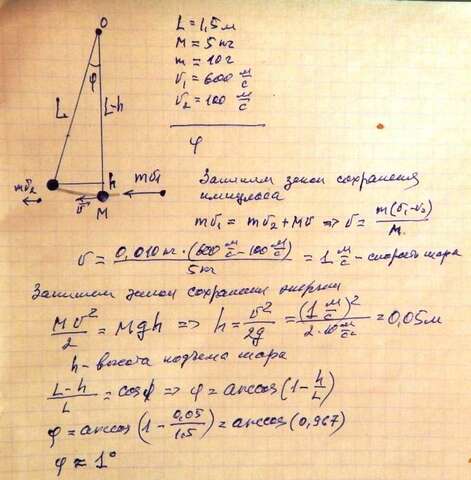 O
φ
L
L-h
h
mv₂
v
M
mv₁
L = 1,5 м
M = 5 кг
m = 10 г
v₁ = 600 м/с
v₂ = 100 м/с
φ
Запишем закон сохранения
импульса
mv₁ = mv₂ + Mv ⇒ v = m(v₁-v₂)/M
v = 0,010 кг · (600 м/с - 100 м/с)/5 кг = 1 м/с - скорость шара
Запишем закон сохранения энергии
Mv²/2 = Mgh ⇒ h = v²/2g = (1 м/с)²/2·10 м/с² = 0,05 м
h - высота подъема шара
L-h/L = cosφ ⇒ φ = arccos(1 - h/L)
φ = arccos(1 - 0,05/1.5) = arccos(0,967)
φ ≈ 1°